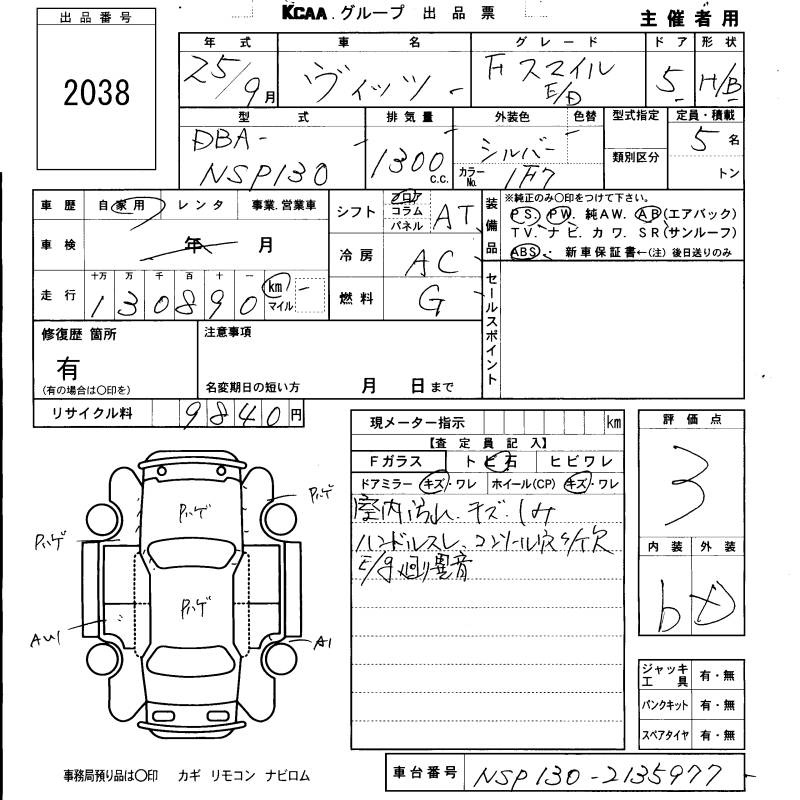 出品番号
KCAA グループ 出品票
主催者用
2038
年式 車名 グレード ドア 形状
25/9月 ヴィッツ F スマイル E/D 5 H/B
型式 排気量 外装色 色替 型式指定 定員・積載
DBA-
NSP130 1300 C.C. シルバー カラーNo. 1F7 類別区分 5名
トン
車歴 自家用 レンタ 事業.営業車
車検 年 月
十万 万 千 百 十 一
走行 130890 km マイル
シフト フロア コラム パネル AT
冷房 AC
燃料 G
装備品
※純正のみ〇印をつけて下さい。
PS. PW. 純AW. AB(エアバック)
TV. ナビ. カワ. SR(サンルーフ)
ABS. 新車保証書←(注) 後日送りのみ
セールスポイント
修復歴 箇所
有
(有の場合は〇印を)
注意事項
名変期日の短い方 月 日まで
リサイクル料 9840円
現メーター指示 km
【査定員記入】
Fガラス トビ石 ヒビワレ
ドアミラー キズ・ワレ ホイール(CP) キズ・ワレ
室内汚れ.キズ.しみ
ハンドルスレ.コンソール穴々欠
E/g廻り異音
評価点
3
内装 外装
b D
ジャッキ工具 有・無
パンクキット 有・無
スペアタイヤ 有・無
Pハゲ
Pハゲ
Pハゲ
Pハゲ
AU1
A1
事務局預り品は〇印 カギ リモコン ナビロム
車台番号 NSP130-2135977